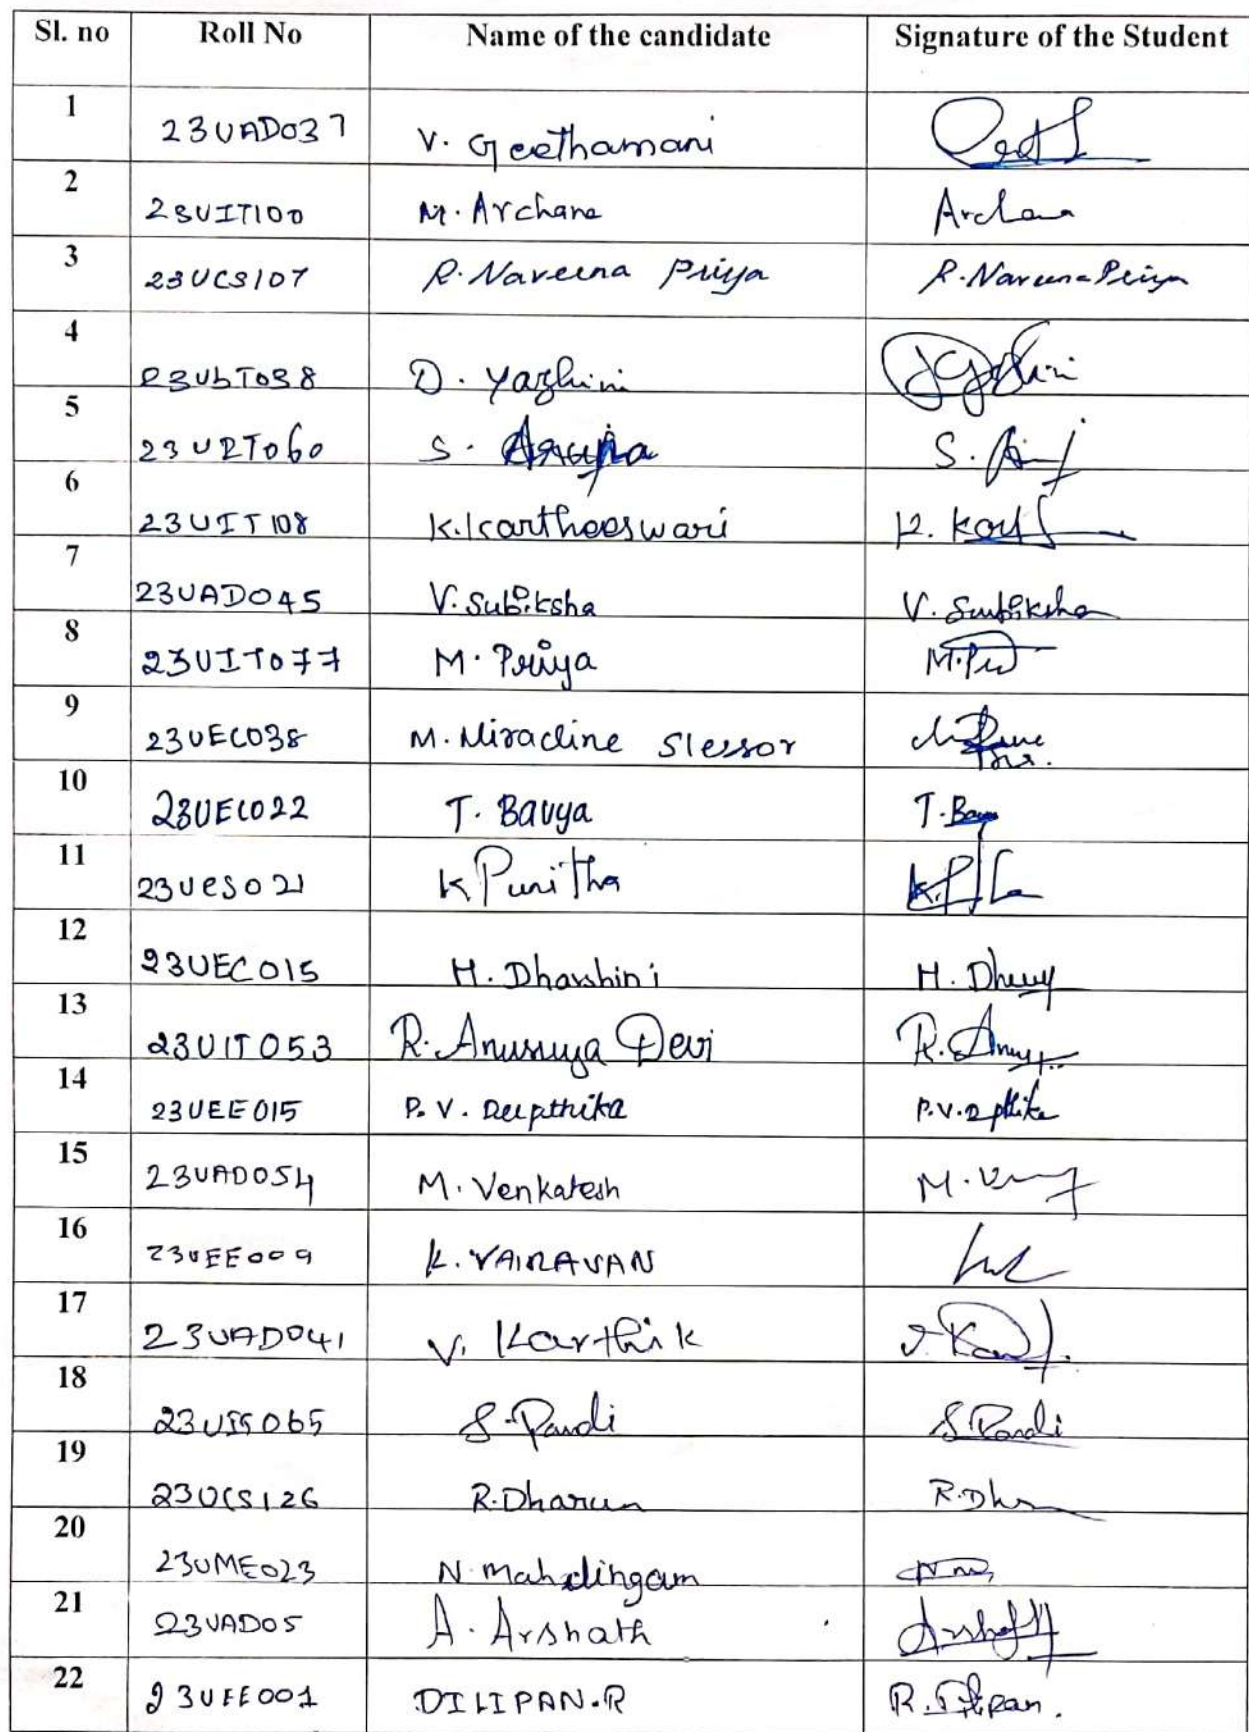 Sl. no Roll No Name of the candidate Signature of the Student
1 23UAD037 V. Geethamani
2 23UIT100 M. Archana Archana
3 23UCS107 R. Naveena Priya R. Naveena Priya
4 23UBT038 D. Yazhini
5 23UBT060 S. Anuja S.
6 23UIT108 K. Kartheeswari K.
7 23UAD045 V. Subiksha V. Subiksha
8 23UIT077 M. Priya
9 23UEC038 M. Miracline Slessor
10 23UEC022 T. Bavya T. Bavya
11 23UCS021 K Punitha
12 23UEC015 H. Dharshini H.
13 23UIT053 R. Anusuya Devi R.
14 23UEE015 P. V. Deepthika P.V.
15 23UAD054 M. Venkatesh M.
16 23UEE009 K. VAIRAVAN
17 23UAD041 V. Karthik
18 065 S. Pandi S. Pandi
19 23UCS126 R. Dharun R.
20 23UME023 N. Mahalingam
21 23UAD05 A. Arshath
22 23UEE001 DILIPAN.R R. Dilipan.